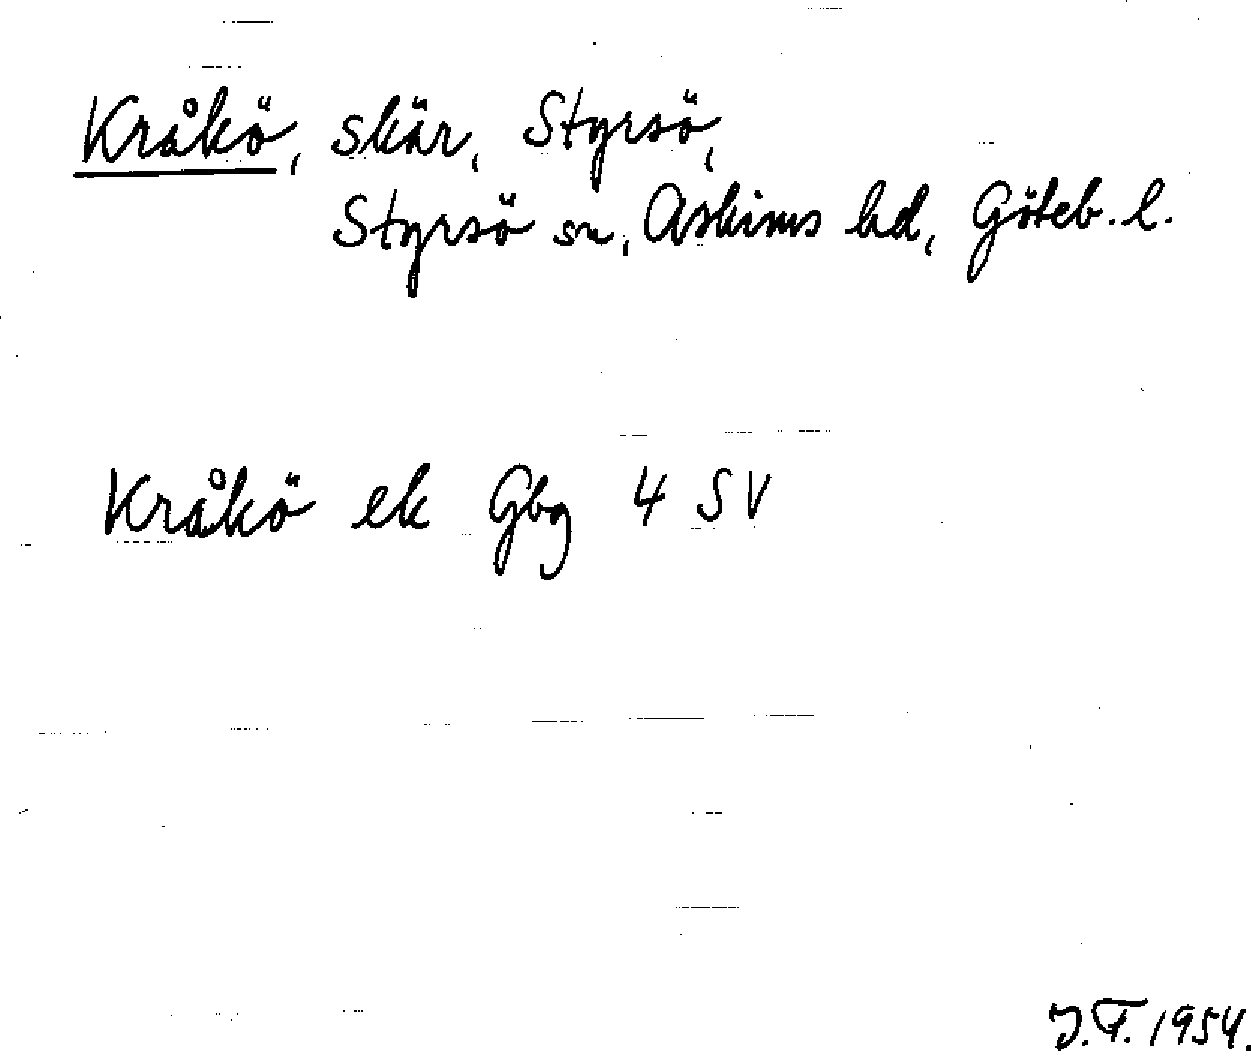 Kråkö, skär, Styrsö,
Styrsö sn, Askims hd, Göteb. l.
Kråkö ek Gbg 4 SV
J.F. 1954.